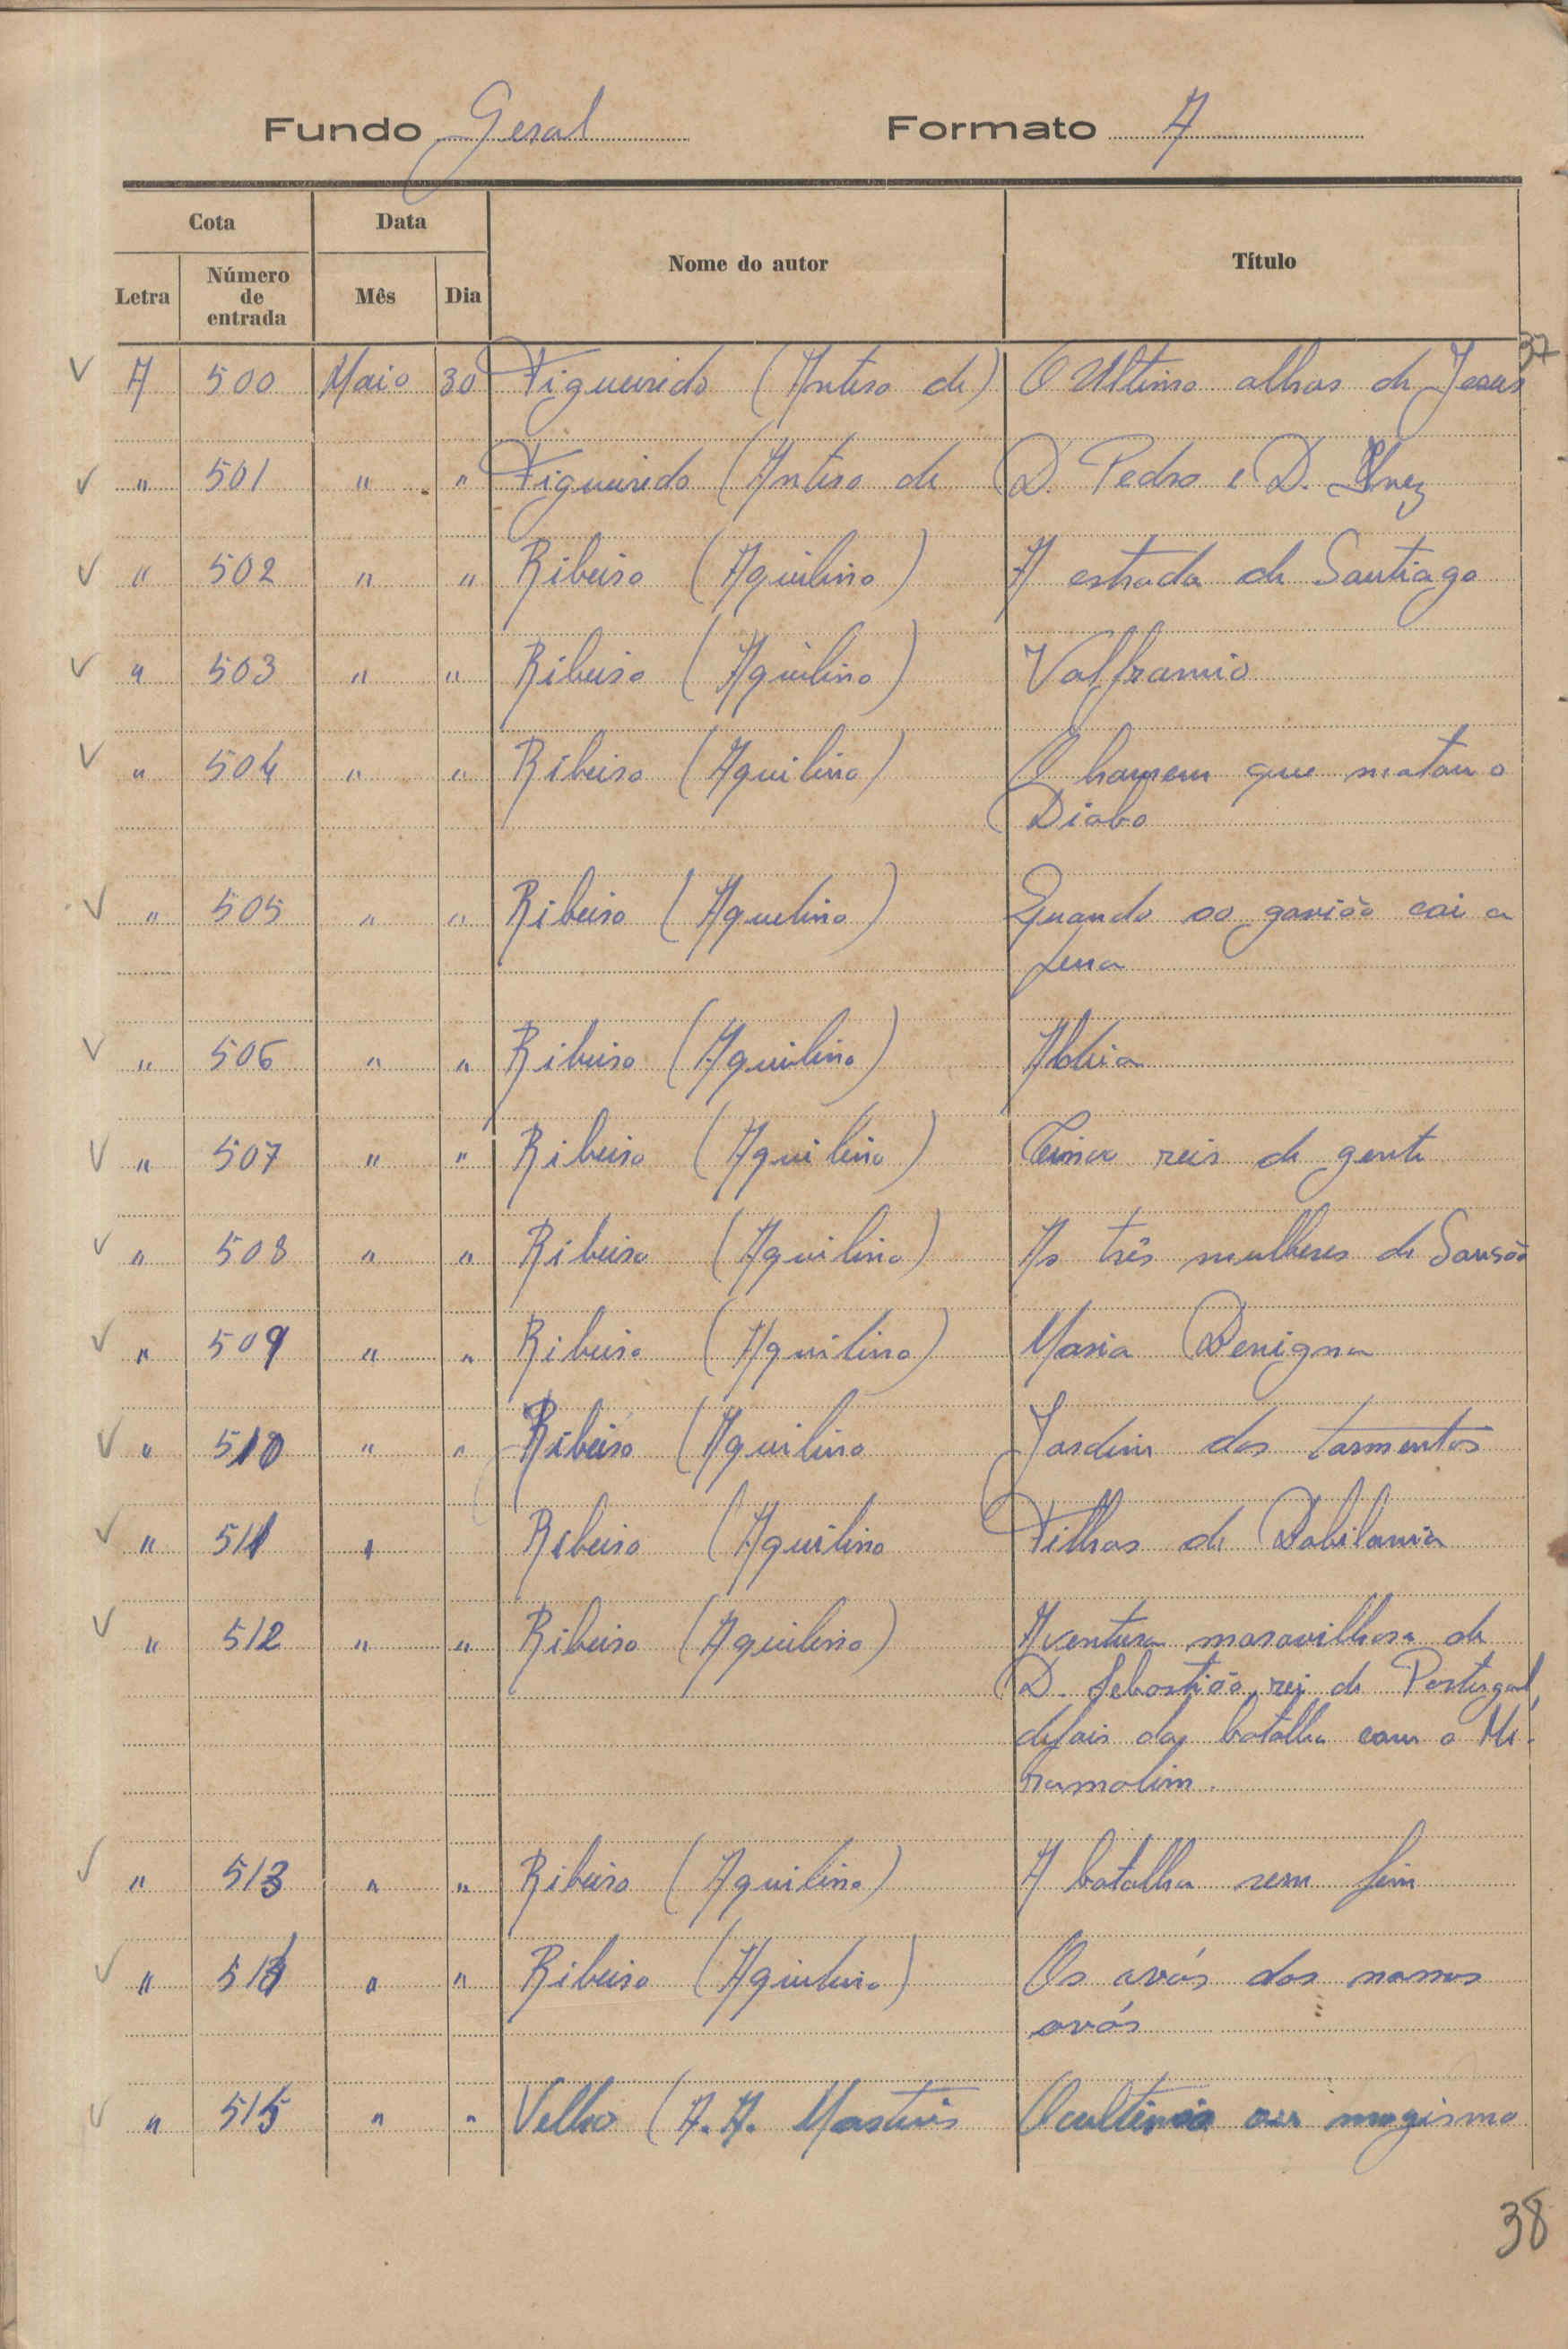 Fundo Geral Formato A
Cota Data Nome do autor Título
Letra Número de entrada Mês Dia
37
V A 500 Maio 30 Figueiredo (Antero de) O Ultimo olhar de Jesus
V " 501 " " Figueiredo (Antero de D. Pedro e D. Inez
V " 502 " " Ribeiro (Aquilino) A estrada de Santiago
V " 503 " " Ribeiro (Aquilino) Volframio
V " 504 " " Ribeiro (Aquilino) O homem que matou o
Diabo
V " 505 " " Ribeiro (Aquilino) Quando ao gavião cai a
pena
V " 506 " " Ribeiro (Aquilino)
V " 507 " " Ribeiro (Aquilino) Cinco reis de gente
V " 508 " " Ribeiro (Aquilino) As três mulheres de Sansão
V " 509 " " Ribeiro (Aquilino) Maria Benigna
V " 510 " " Ribeiro (Aquilino Jardim das tormentas
V " 511 " Ribeiro (Aquilino Filhas de Babilonia
V " 512 " " Ribeiro (Aquilino) Aventura maravilhosa de
D. Sebastião, rei de Portugal,
depois da batalha com o Mi-
ramolim.
V " 513 " " Ribeiro (Aquilino) A batalha sem fim
V " 514 " " Ribeiro (Aquilino) Os avós dos nossos
avós
V " 515 " " Velho (A. A. Martins magismo
38